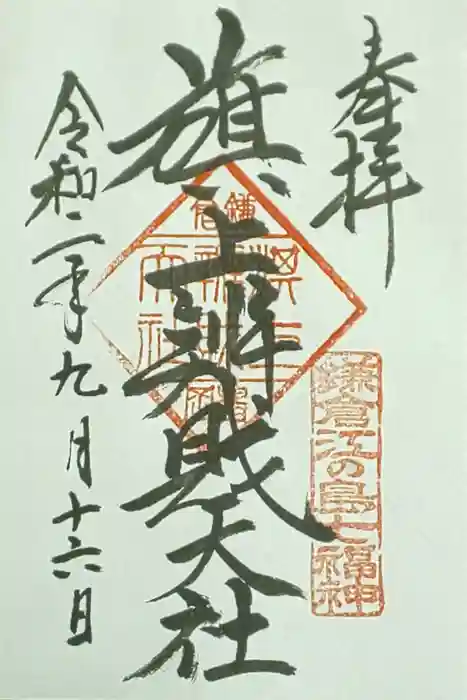 奉拝
鎌倉江の島七福神
旗上辨財天社
令和二年九月十六日